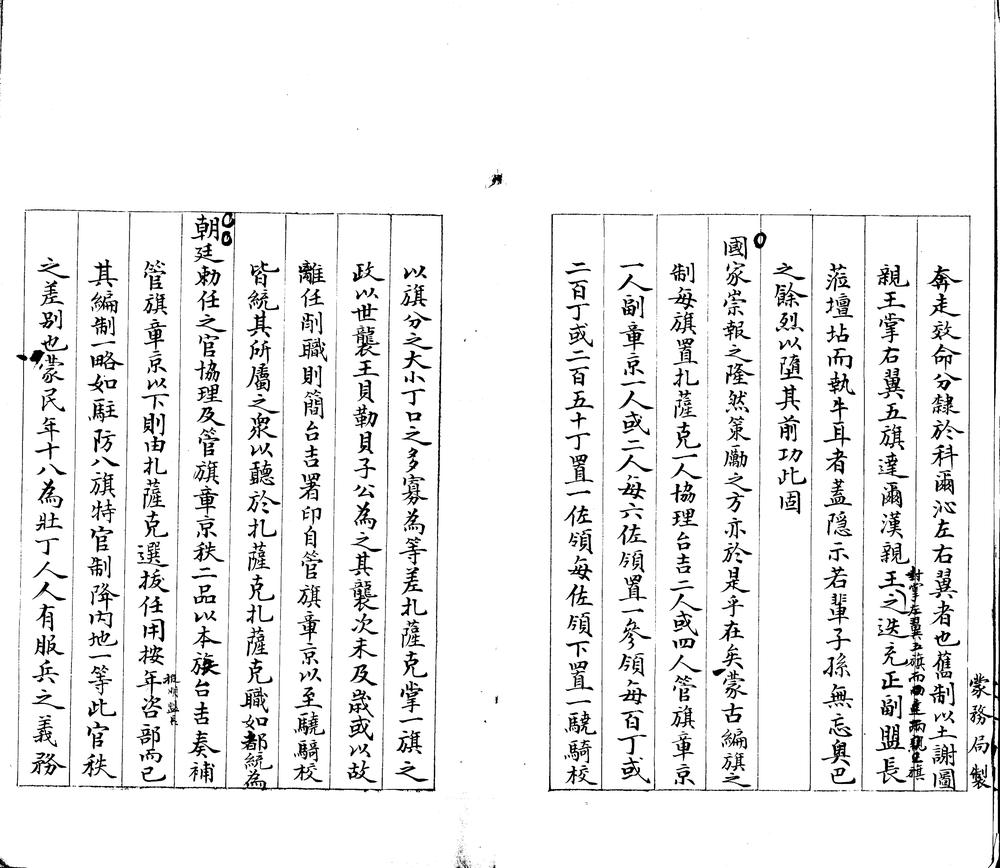 蒙務局製
奔走效命分隸於科爾沁左右翼者也舊制以土謝圖
親王掌右翼五旗達爾漢親王之迭充正副盟長
對掌左翼五旗而
蒞壇坫而執牛耳者蓋隱示若輩子孫無忘奧巴
之餘烈以墮其前功此固
國家崇報之隆然策勵之方亦於是乎在矣蒙古編旗之
制每旗置扎薩克一人協理台吉二人或四人管旗章京
一人副章京一人或二人每六佐領置一參領每百丁或
二百丁或二百五十丁置一佐領每佐領下置一驍騎校
以旗分之大小丁口之多寡為等差扎薩克掌一旗之
政以世襲王貝勒貝子公為之其襲次未及歲或以故
離任削職則簡台吉署印自管旗章京以至驍騎校
皆統其所屬之眾以聽於扎薩克扎薩克職如都統為
朝廷勅任之官協理及管旗章京秩二品以本族台吉奏補
管旗章京以下則由扎薩克選拔任用按年咨部而已
其編制一略如駐防八旗特官制降內地一等此官秩
之差別也蒙民年十八為壯丁人人有服兵之義務